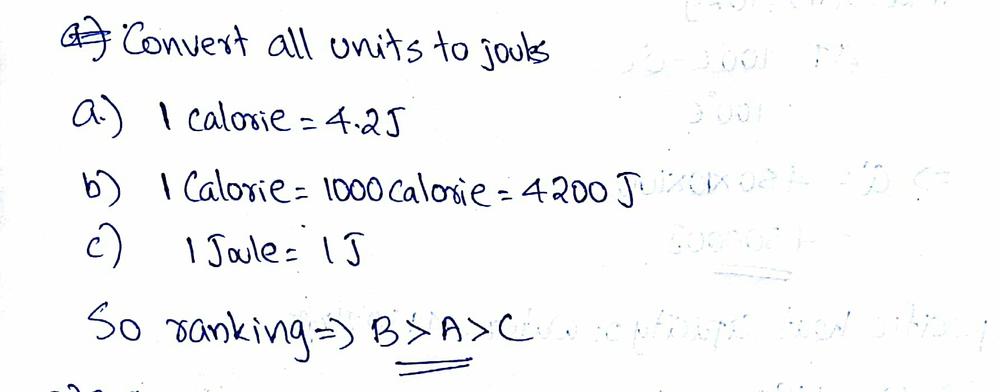 Convert all units to jouls
a.) 1 calorie = 4.2J
b) 1 Calorie = 1000 calorie = 4200 J
c) 1 Joule = 1 J
So ranking => B > A > C